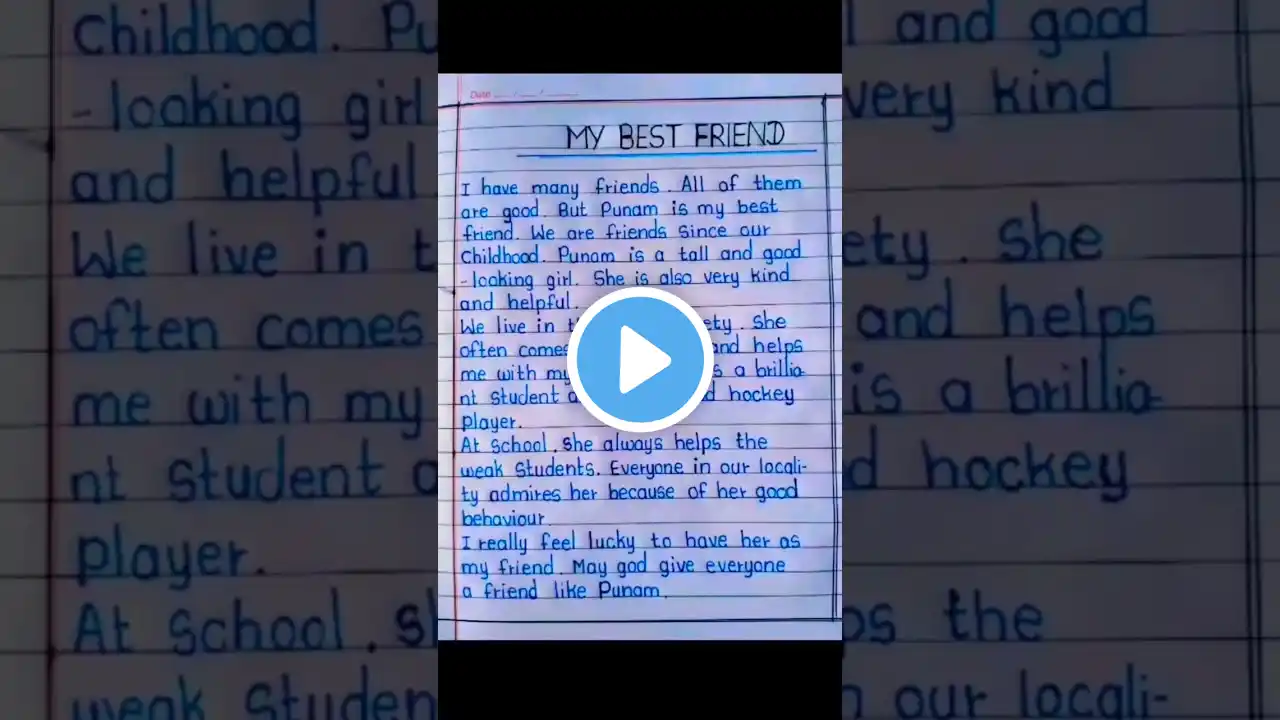 Date
MY BEST FRIEND
I have many friends. All of them
are good. But Punam is my best
friend. We are friends since our
Childhood. Punam is a tall and good
-looking girl. She is also very kind
and helpful.
We live in She
often comes and helps
me with my is a brillia-
nt student hockey
player.
At School, she always helps the
weak Students. Everyone in our locali-
ty admires her because of her good
behaviour.
I really feel lucky to have her as
my friend. May god give everyone
a friend like Punam.